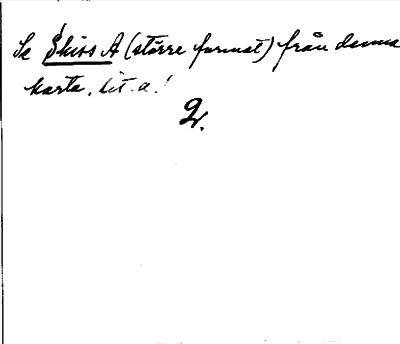 Se Skiss A (större format) från denna
karta, lit. a!